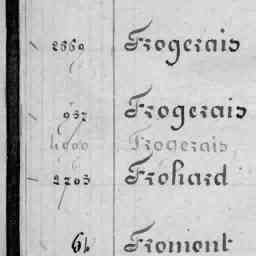 2669 Frogerais
957 Frogerais
4000 Frogerais
2203 Frohard
61 Fromont